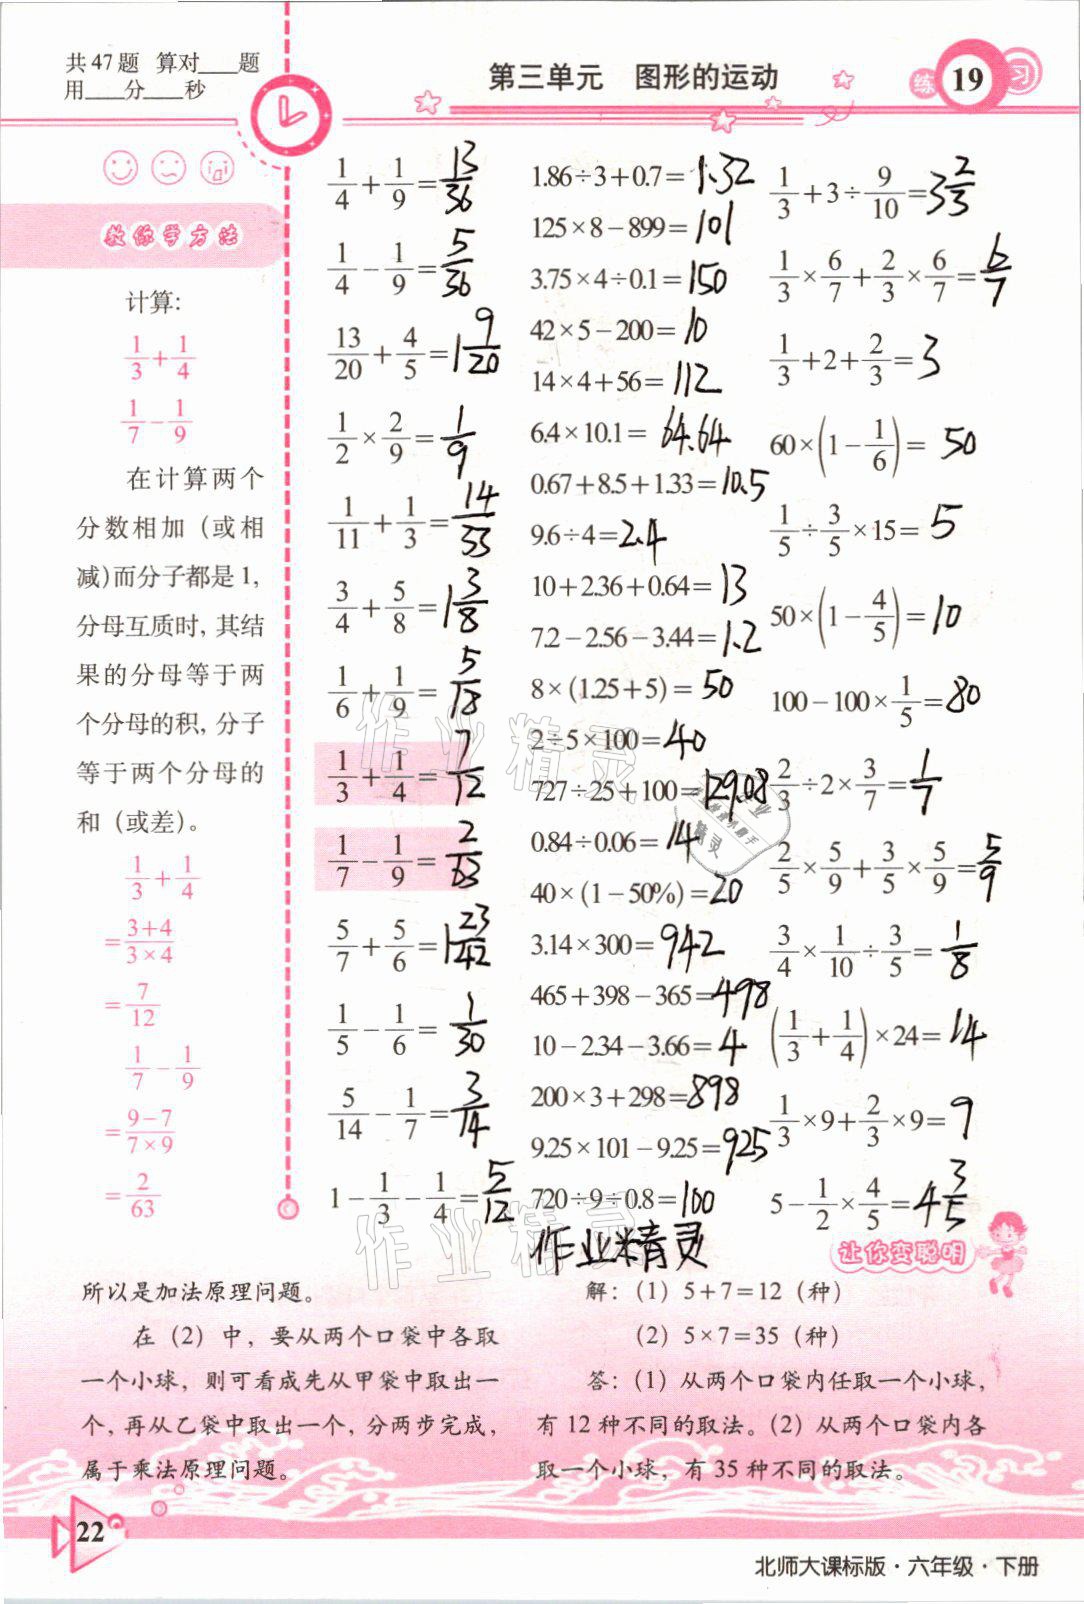 共47题 算对____题
用____分____秒
第三单元 图形的运动
练 19 习
教你学方法
计算:
1/3+1/4
1/7-1/9
在计算两个
分数相加(或相
减)而分子都是1,
分母互质时,其结
果的分母等于两
个分母的积,分子
等于两个分母的
和(或差)。
1/3+1/4
=(3+4)/(3×4)
=7/12
1/7-1/9
=(9-7)/(7×9)
=2/63
1/4+1/9=13/36
1/4-1/9=5/36
13/20+4/5=1 9/20
1/2×2/9=1/9
1/11+1/3=14/33
3/4+5/8=1 3/8
1/6+1/9=5/18
1/3+1/4=7/12
1/7-1/9=2/63
5/7+5/6=1 23/42
1/5-1/6=1/30
5/14-1/7=3/14
1-1/3-1/4=5/12
1.86÷3+0.7=1.32
125×8-899=101
3.75×4÷0.1=150
42×5-200=10
14×4+56=112
6.4×10.1=64.64
0.67+8.5+1.33=10.5
9.6÷4=2.4
10+2.36+0.64=13
7.2-2.56-3.44=1.2
8×(1.25+5)=50
2÷5×100=40
727÷25+100=129.08
0.84÷0.06=14
40×(1-50%)=20
3.14×300=942
465+398-365=498
10-2.34-3.66=4
200×3+298=898
9.25×101-9.25=925
720÷9÷0.8=100
作业精灵
1/3+3÷9/10=3 2/3
1/3×6/7+2/3×6/7=6/7
1/3+2+2/3=3
60×(1-1/6)=50
1/5÷3/5×15=5
50×(1-4/5)=10
100-100×1/5=80
2/3÷2×3/7=1/7
2/5×5/9+3/5×5/9=5/9
3/4×1/10÷3/5=1/8
(1/3+1/4)×24=14
1/3×9+2/3×9=9
5-1/2×4/5=4 3/5
让你变聪明
所以是加法原理问题。
在(2)中,要从两个口袋中各取
一个小球,则可看成先从甲袋中取出一
个,再从乙袋中取出一个,分两步完成,
属于乘法原理问题。
解:(1)5+7=12(种)
(2)5×7=35(种)
答:(1)从两个口袋内任取一个小球,
有12种不同的取法。(2)从两个口袋内各
取一个小球,有35种不同的取法。
22
北师大课标版·六年级·下册
作业精灵
作业精灵